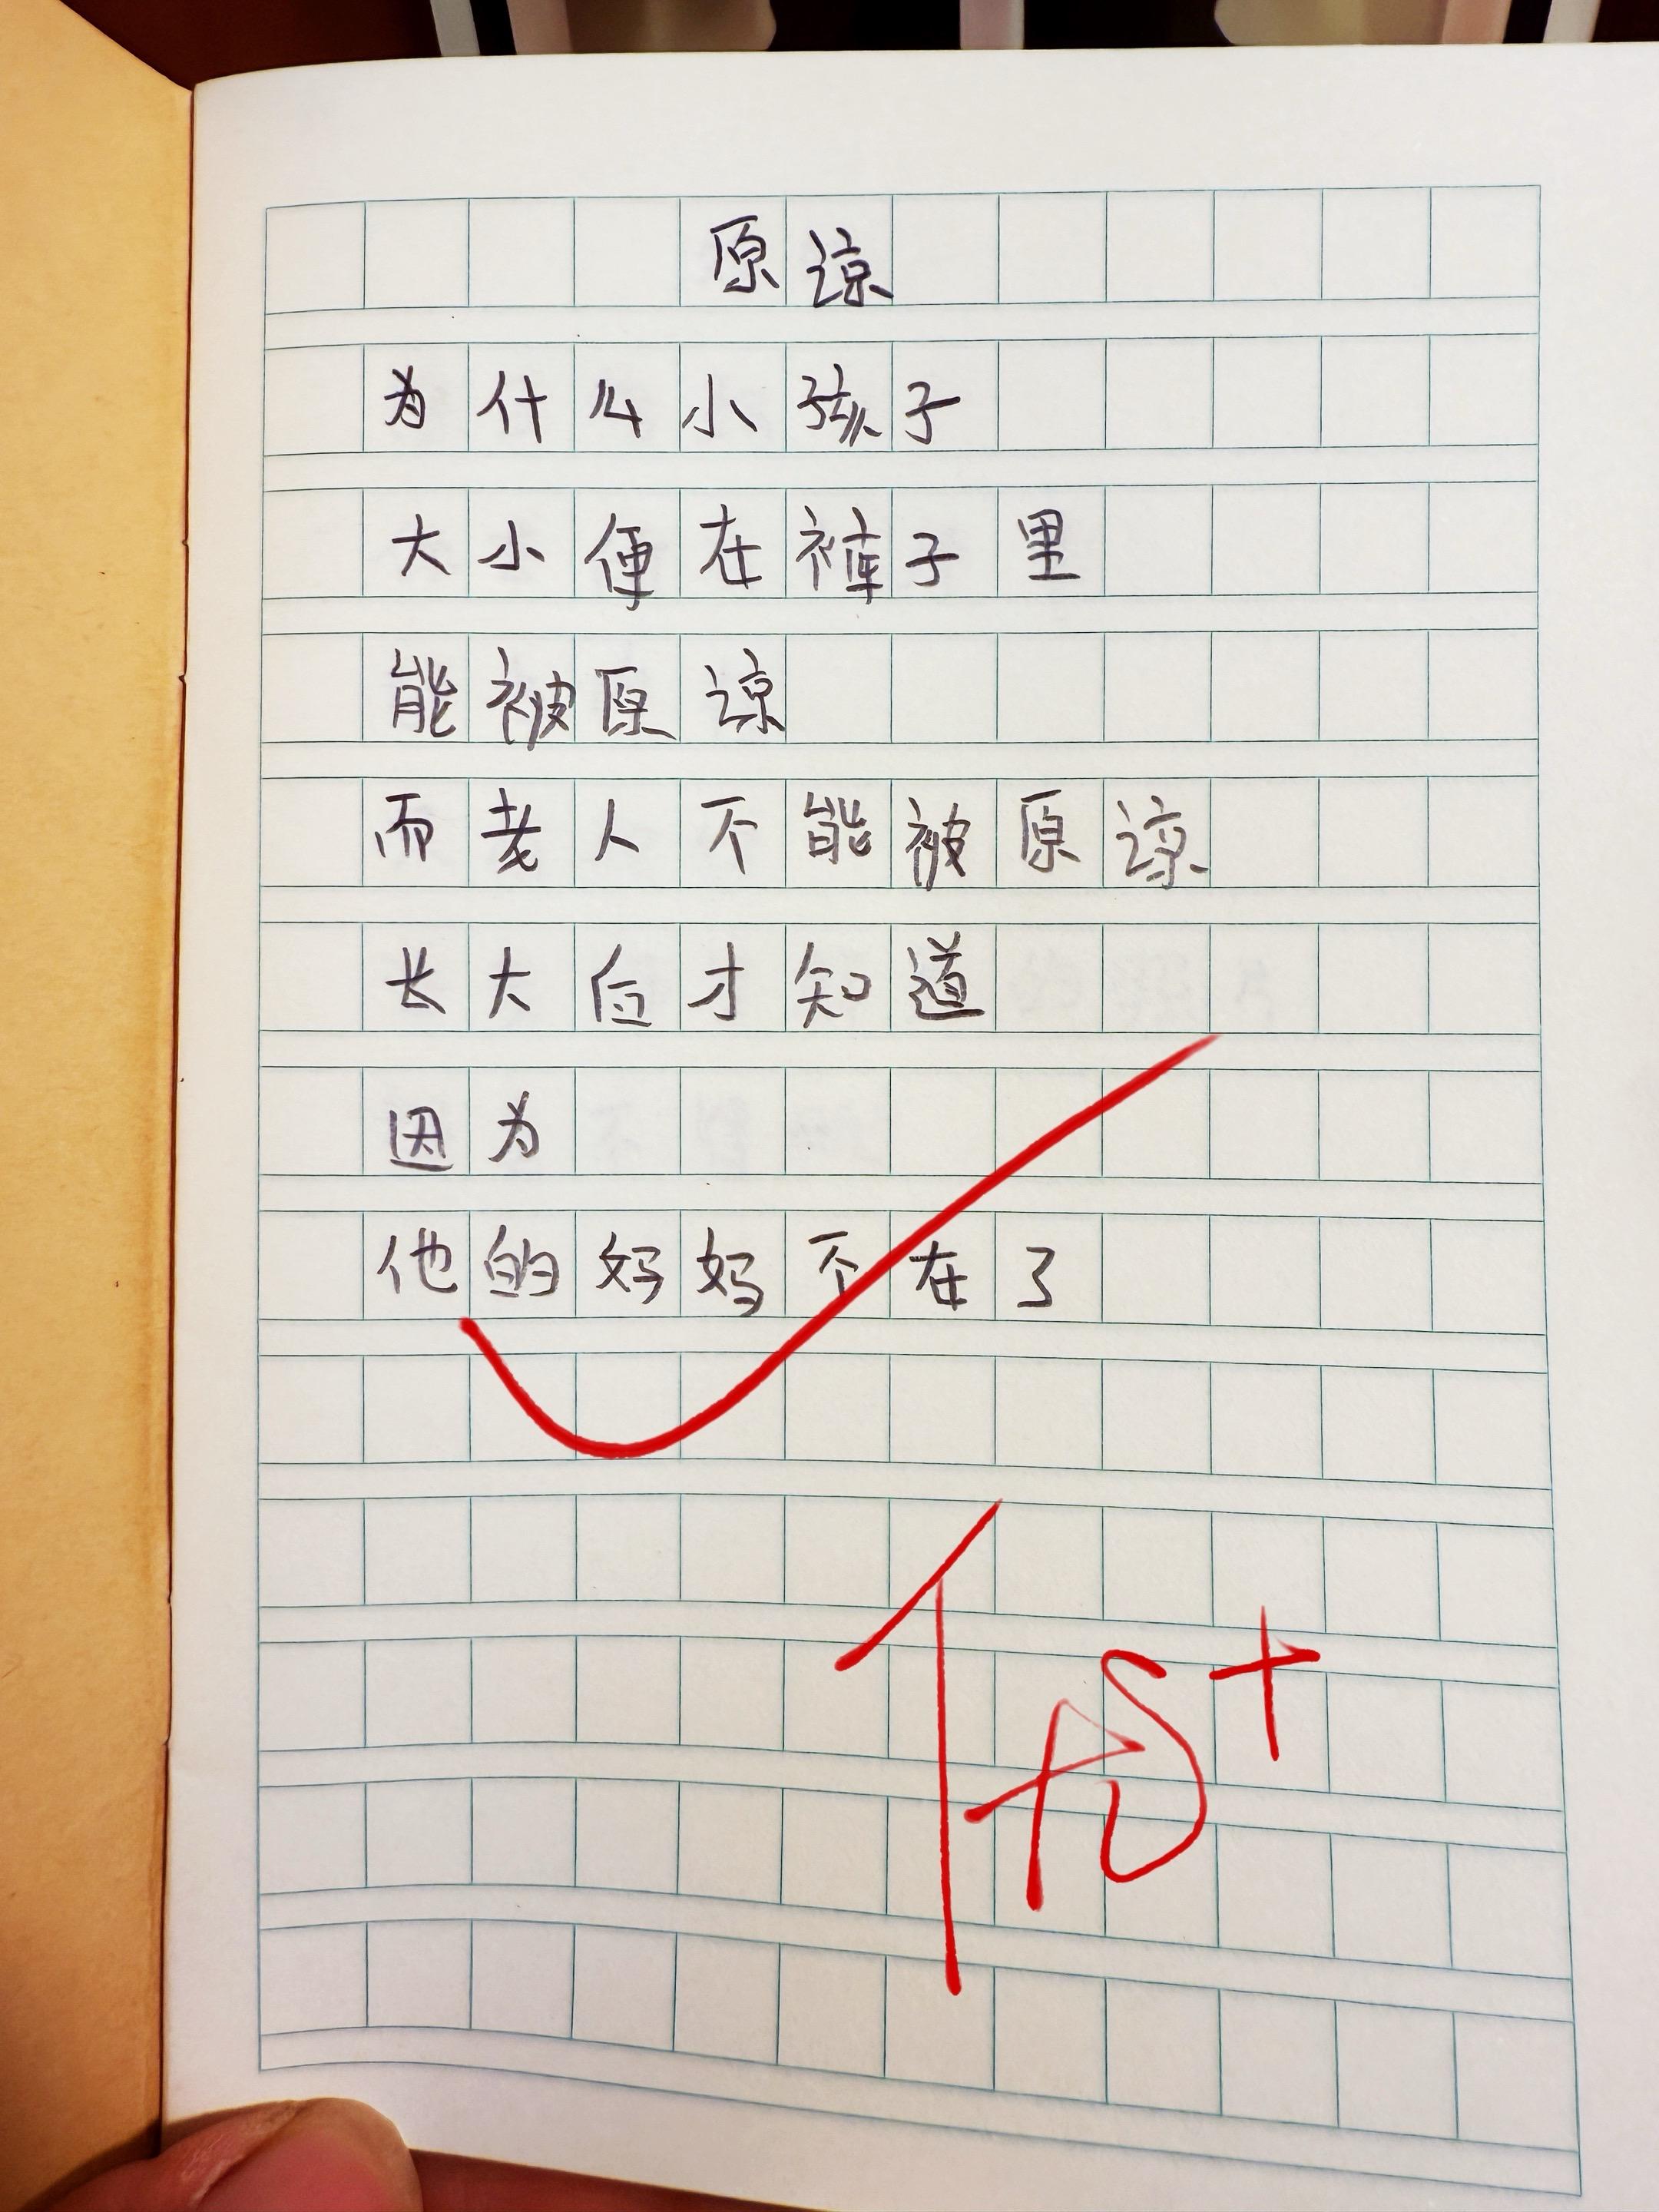 原谅
为什么小孩子
大小便在裤子里
能被原谅
而老人不能被原谅
长大后才知道
因为
他的妈妈不在了